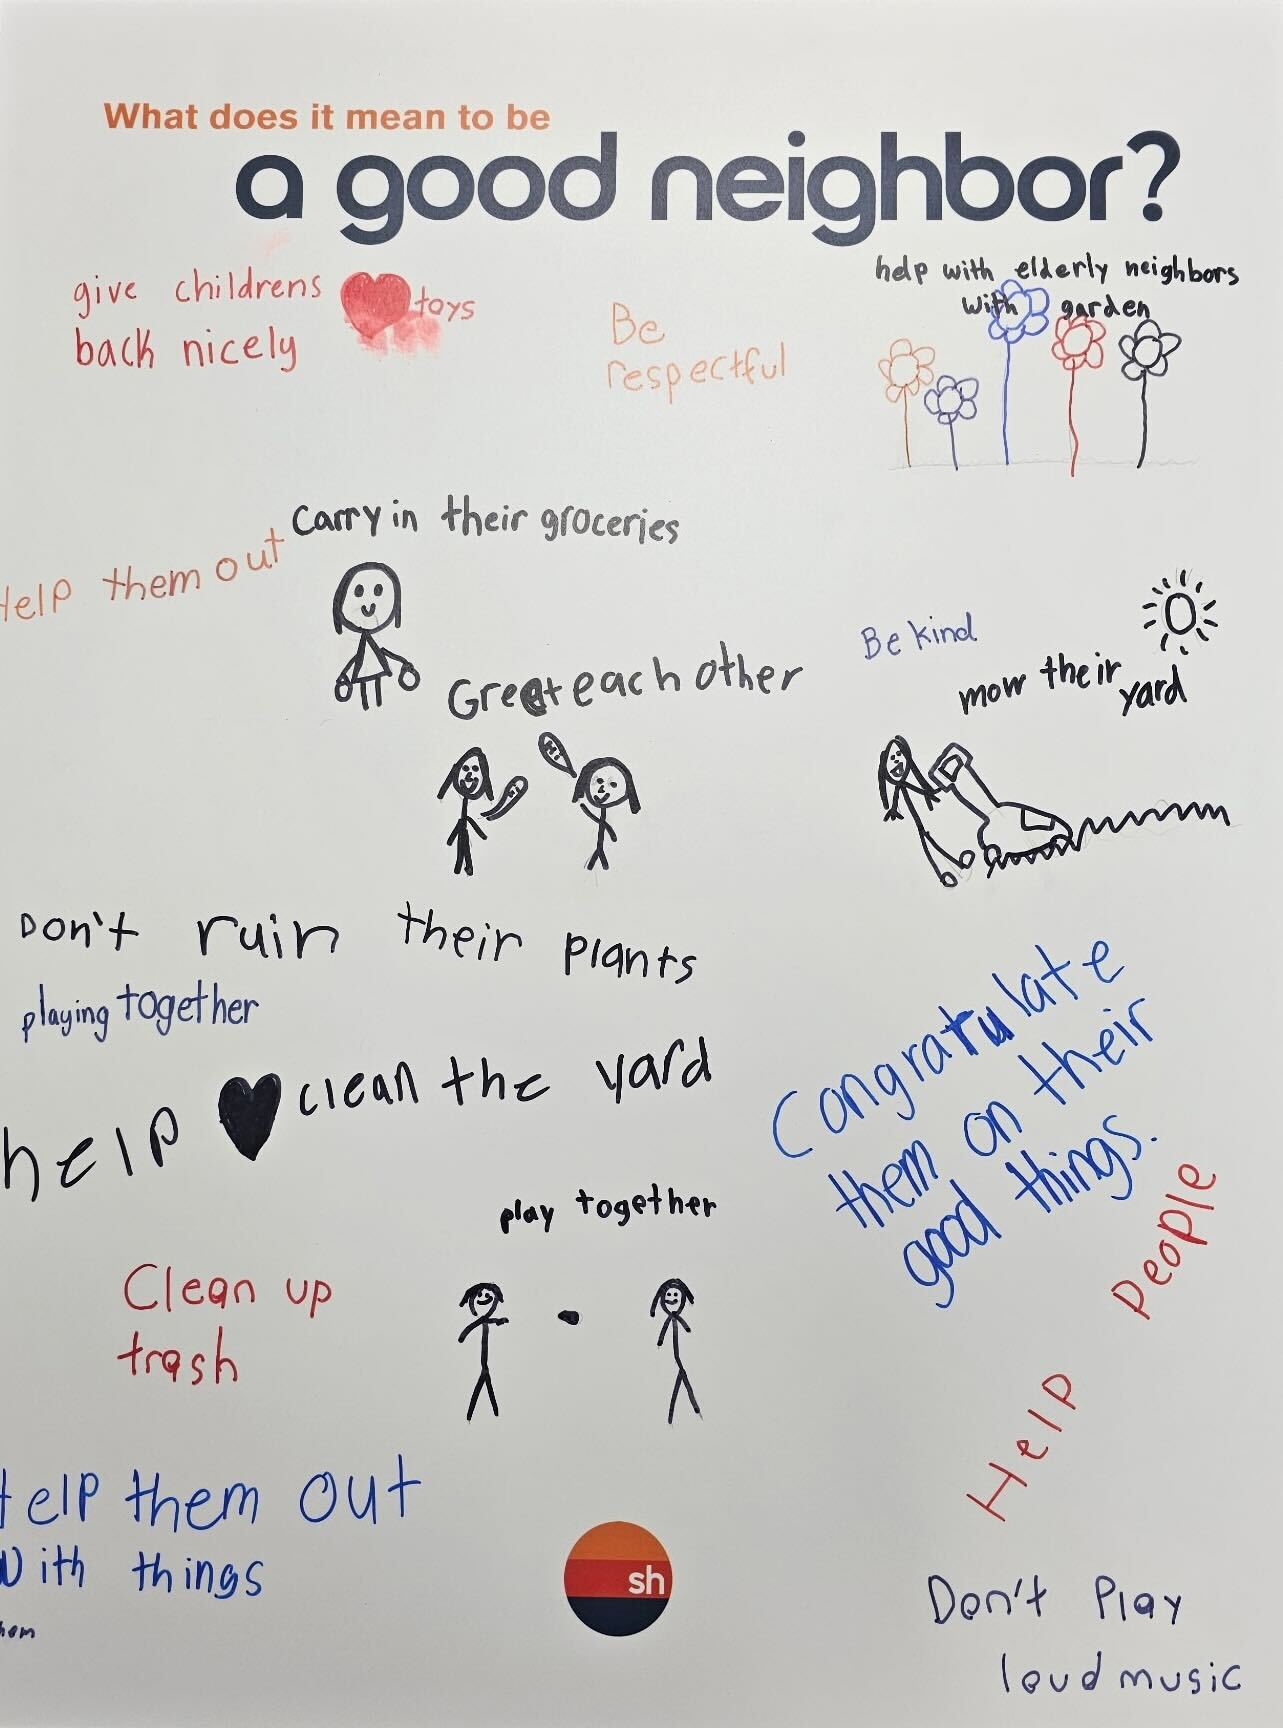 What does it mean to be
a good neighbor?
give childrens toys
back nicely
Be
respectful
help with elderly neighbors
with garden
Help them out
Carry in their groceries
Greet each other
Be kind
mow their
yard
Don't ruin their plants
playing together
help clean the yard
Congratulate
them on their
good things.
play together
Clean up
trash
Help People
Help them out
With things
sh
Don't Play
loud music